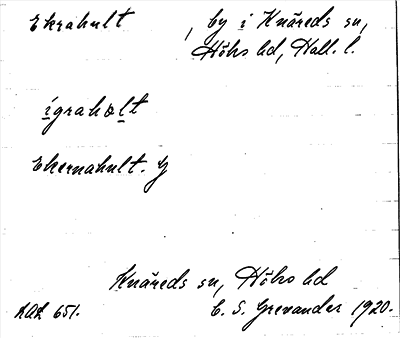 Ekrahult , by i Knäreds sn,
Höks hd, Hall. l.
ígrahɷlt
Ekernahult. G
Knäreds sn, Höks hd
LAL 651. C. S. Grevander 1920.